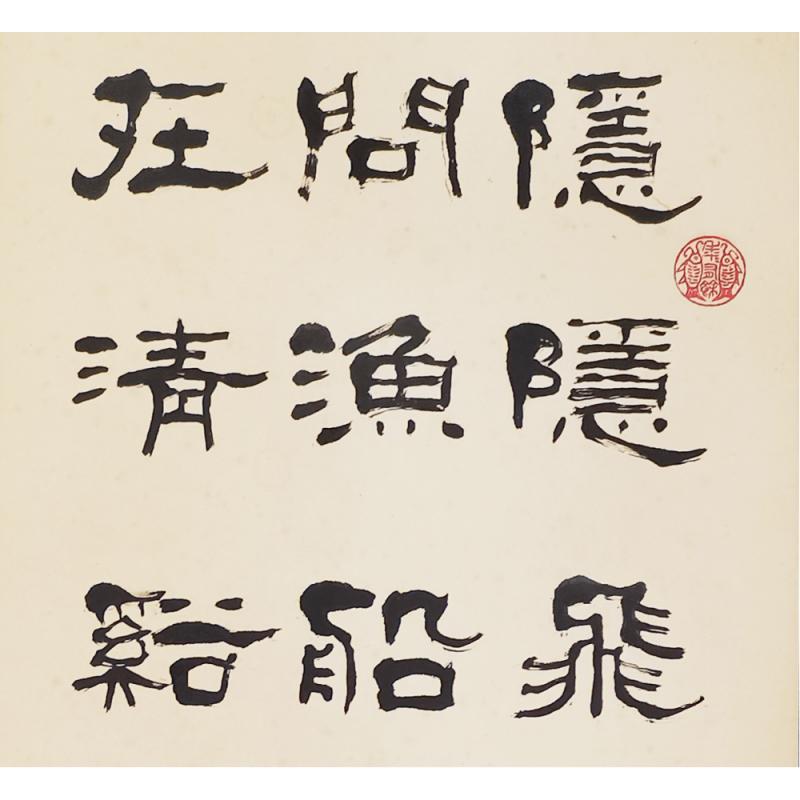 隱隱飛
問漁船
在清谿